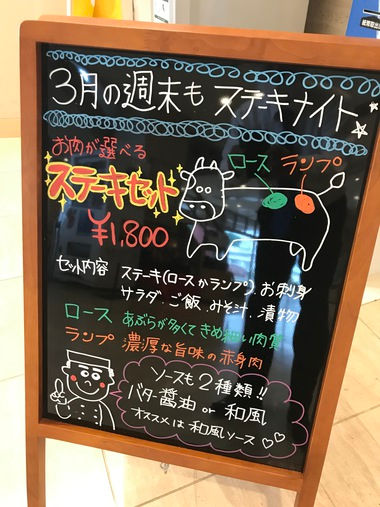 3月の週末も ステーキナイト
お肉が選べる
ステーキセット
¥1,800
ロース ランプ
セット内容 ステーキ(ロースかランプ)、お刺身
サラダ、ご飯、みそ汁、漬物
ロース あぶらが多くてきめ細い肉質
ランプ 濃厚な旨味の赤身肉
ソースも2種類!!
バター醤油 or 和風
オススメは和風ソース♡♡